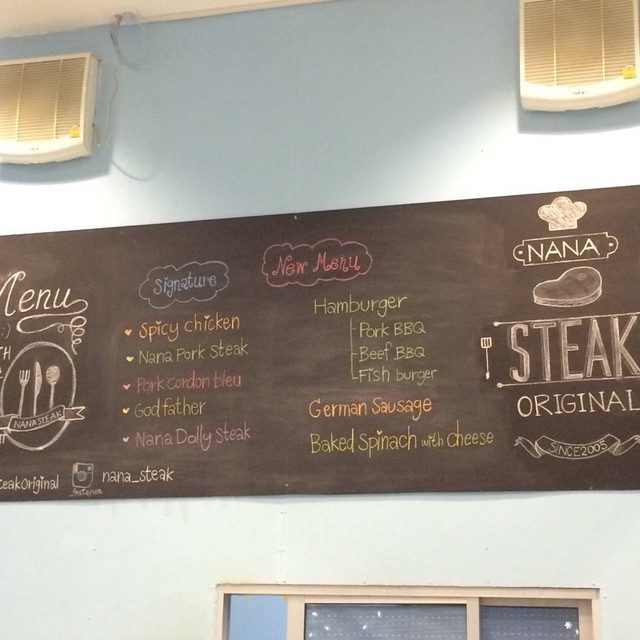 Menu
:)
NANA STEAK
teakOriginal
Instagram
nana_steak
Signature
Spicy chicken
Nana Pork steak
Pork cordon bleu
God father
Nana Dolly steak
New Menu
Hamburger
Pork BBQ
Beef BBQ
Fish burger
German Sausage
Baked Spinach with cheese
NANA
STEAK
ORIGINAL
SINCE 2005